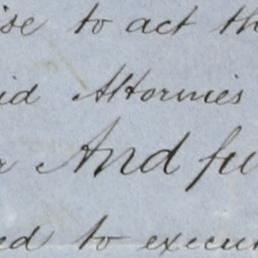 ise to act th
id Attornies
r And fu
ed to execut